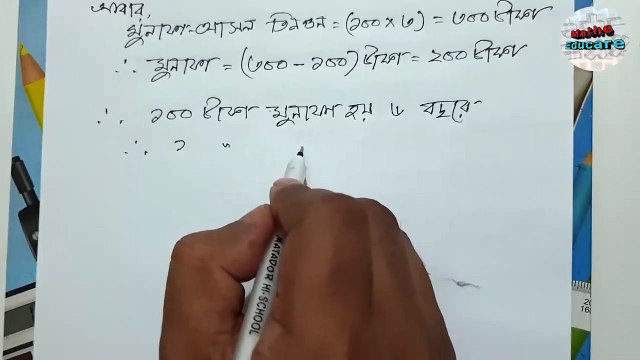 আবার,
মুনাফা-আসল তিনগুন = (১০০ × ৩) = ৩০০ টাকা
∴ মুনাফা = (৩০০ - ১০০) টাকা = ২০০ টাকা
∴ ১০০ টাকা মুনাফা হয় ৮ বছরে
∴ ১ "
Maths
EDUCARE
MATADOR HI-SCHOOL